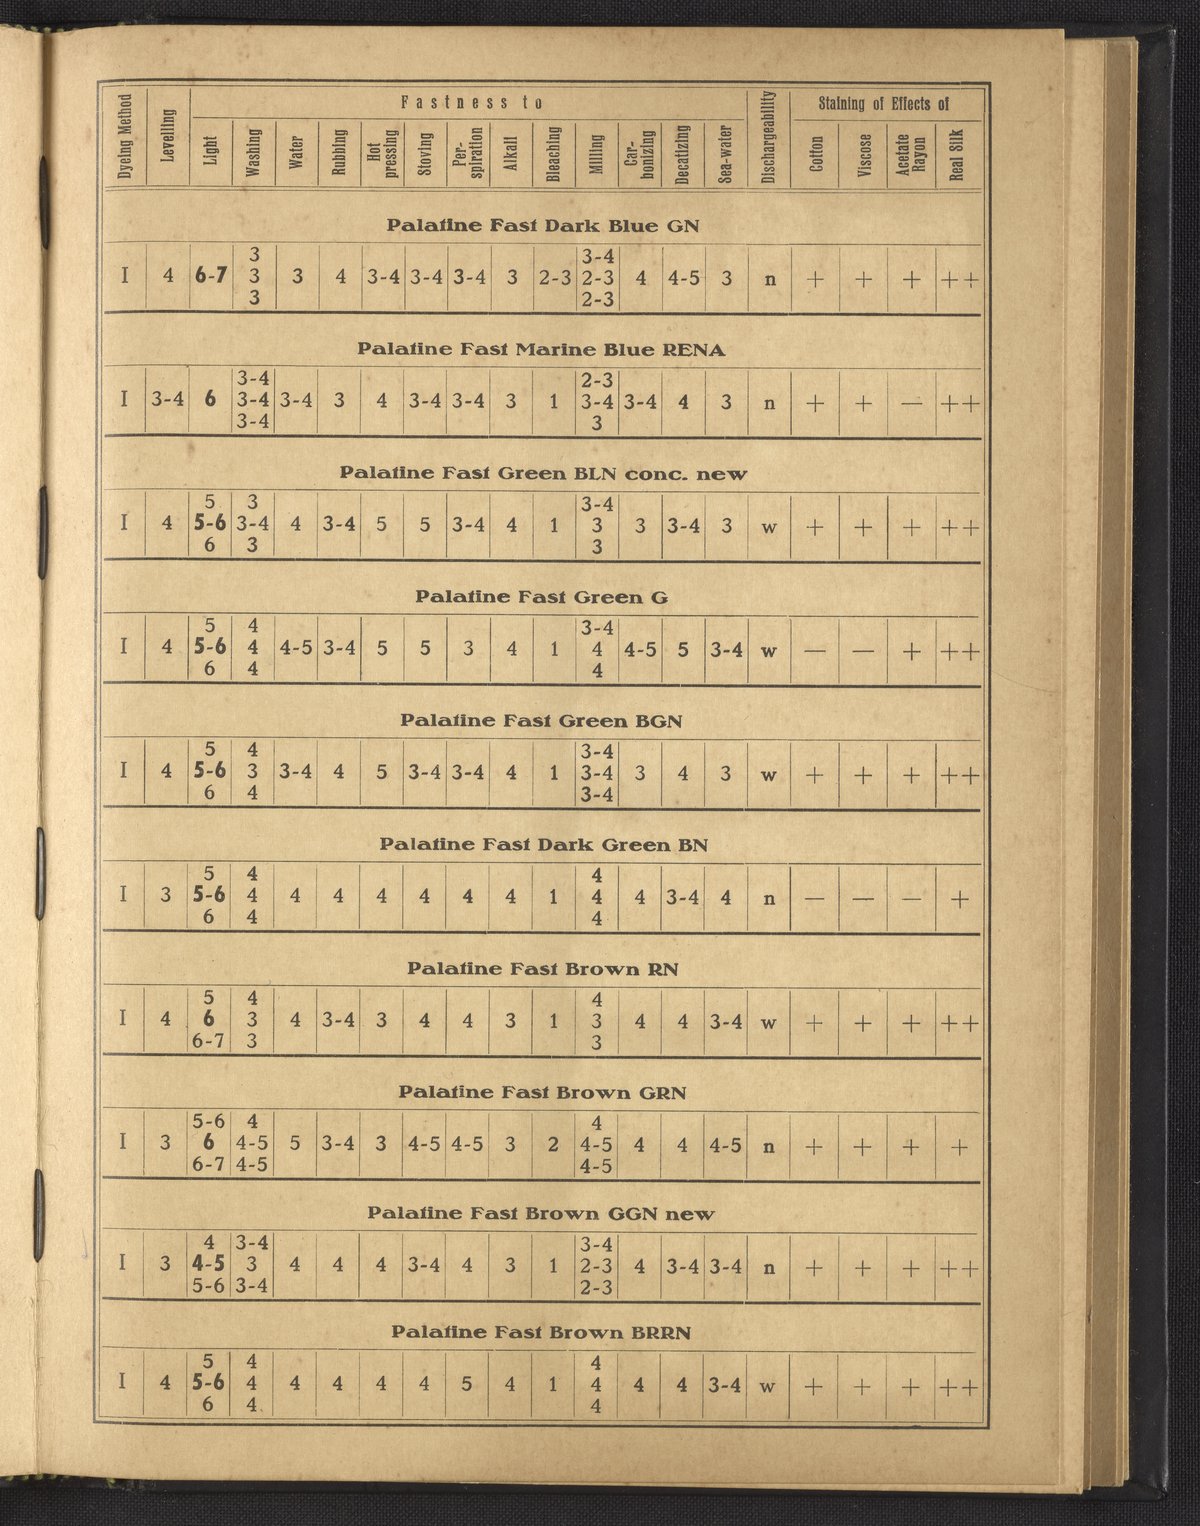 Fastness to
Staining of Effects of
Dyeing Method Levelling Light Washing Water Rubbing Hot pressing Stoving Per-spiration Alkali Bleaching Milling Car-bonizing Decatizing Sea-water Dischargeability Cotton Viscose Acetate Rayon Real Silk
Palatine Fast Dark Blue GN
3 3-4
I 4 6-7 3 3 4 3-4 3-4 3-4 3 2-3 2-3 4 4-5 3 n + + + ++
3 2-3
Palatine Fast Marine Blue RENA
3-4 2-3
I 3-4 6 3-4 3-4 3 4 3-4 3-4 3 1 3-4 3-4 4 3 n + + — ++
3-4 3
Palatine Fast Green BLN conc. new
5 3 3-4
I 4 5-6 3-4 4 3-4 5 5 3-4 4 1 3 3 3-4 3 w + + + ++
6 3 3
Palatine Fast Green G
5 4 3-4
I 4 5-6 4 4-5 3-4 5 5 3 4 1 4 4-5 5 3-4 w — — + ++
6 4 4
Palatine Fast Green BGN
5 4 3-4
I 4 5-6 3 3-4 4 5 3-4 3-4 4 1 3-4 3 4 3 w + + + ++
6 4 3-4
Palatine Fast Dark Green BN
5 4 4
I 3 5-6 4 4 4 4 4 4 4 1 4 4 3-4 4 n — — — +
6 4 4
Palatine Fast Brown RN
5 4 4
I 4 6 3 4 3-4 3 4 4 3 1 3 4 4 3-4 w + + + ++
6-7 3 3
Palatine Fast Brown GRN
5-6 4 4
I 3 6 4-5 5 3-4 3 4-5 4-5 3 2 4-5 4 4 4-5 n + + + +
6-7 4-5 4-5
Palatine Fast Brown GGN new
4 3-4 3-4
I 3 4-5 3 4 4 4 3-4 4 3 1 2-3 4 3-4 3-4 n + + + ++
5-6 3-4 2-3
Palatine Fast Brown BRRN
5 4 4
I 4 5-6 4 4 4 4 4 5 4 1 4 4 4 3-4 w + + + ++
6 4 4